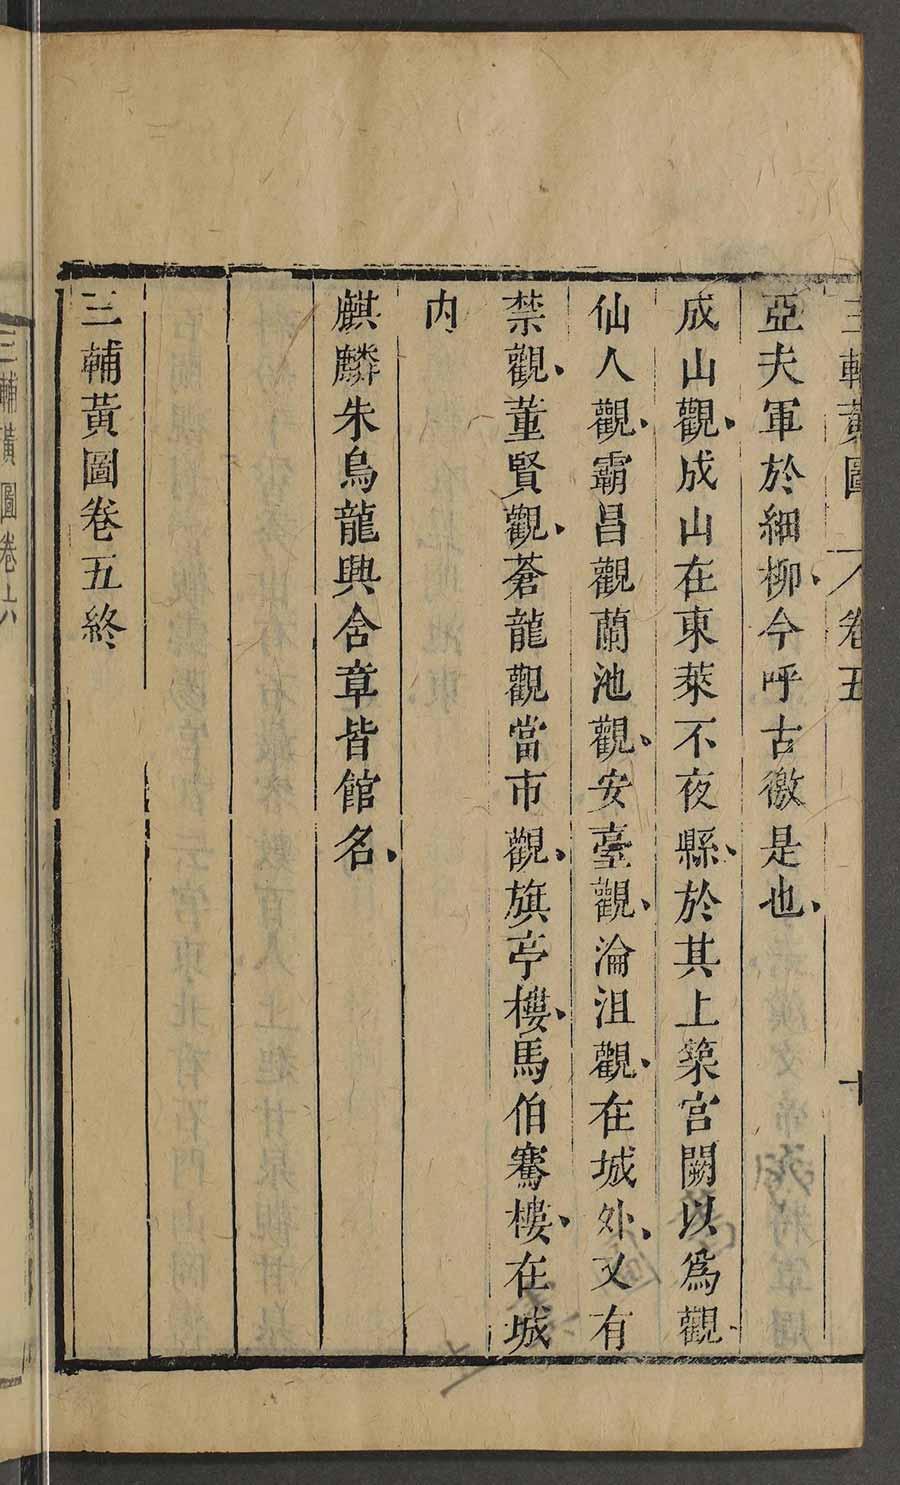 三輔黃圖 卷五 十
亞夫軍於細柳、今呼古徼是也、
成山觀、成山在東萊不夜縣、於其上築宮闕以爲觀
仙人觀、霸昌觀蘭池觀、安臺觀、淪沮觀、在城外、又有
禁觀、董賢觀、蒼龍觀當市觀、旗亭樓、馬伯騫樓、在城
内
麒麟朱鳥龍興含章皆館名、
三輔黃圖卷五終
三輔黃圖卷六